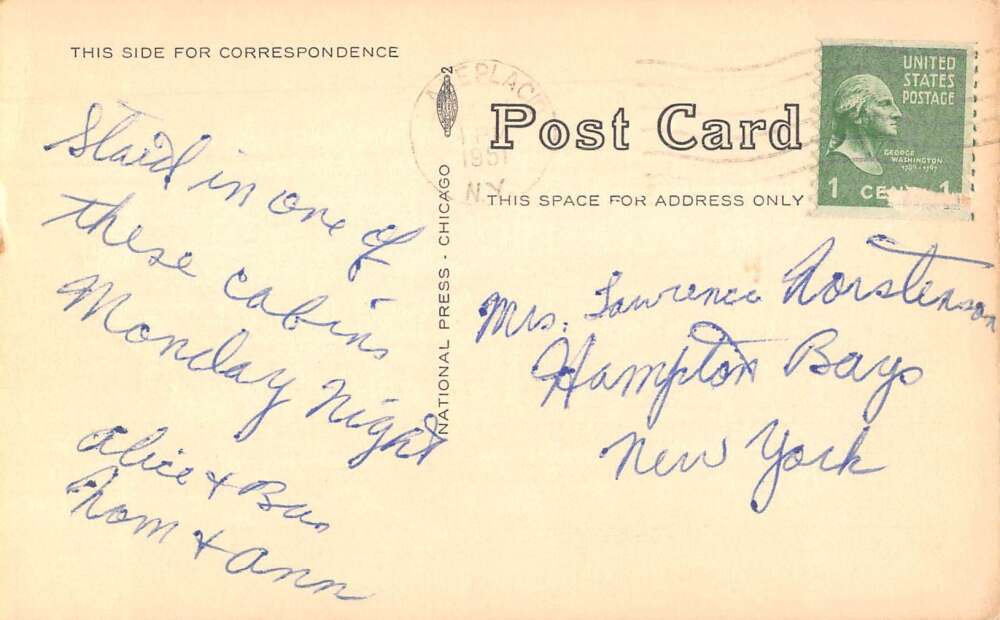 THIS SIDE FOR CORRESPONDENCE
Staid in one of
these cabins
Monday Night
Alice & Bus
Nom & Ann
NATIONAL PRESS - CHICAGO
2
1951
N.Y.
Post Card
THIS SPACE FOR ADDRESS ONLY
UNITED
STATES
POSTAGE
GEORGE
WASHINGTON
1789-1797
1 CENT 1
Mrs. Lawrence Norstenson
Hampton Bays
New York